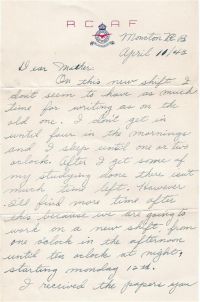 RCAF
Moncton N.B
April 10/43
Dear Mother.
On this new shift I
don't seem to have as much
time for writing as on the
old one. I don't get in
until four in the mornings
and I sleep until one or two
oclock. After I get some of
my studying done there isn't
much time left. However
I'll find more time after
this because we are going to
work on a new shift from
one oclock in the afternoon
until ten oclock at night,
starting monday 12th.
I received the papers you